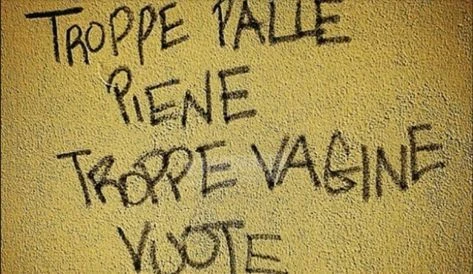 TROPPE PALLE
PIENE
TROPPE VAGINE
VUOTE